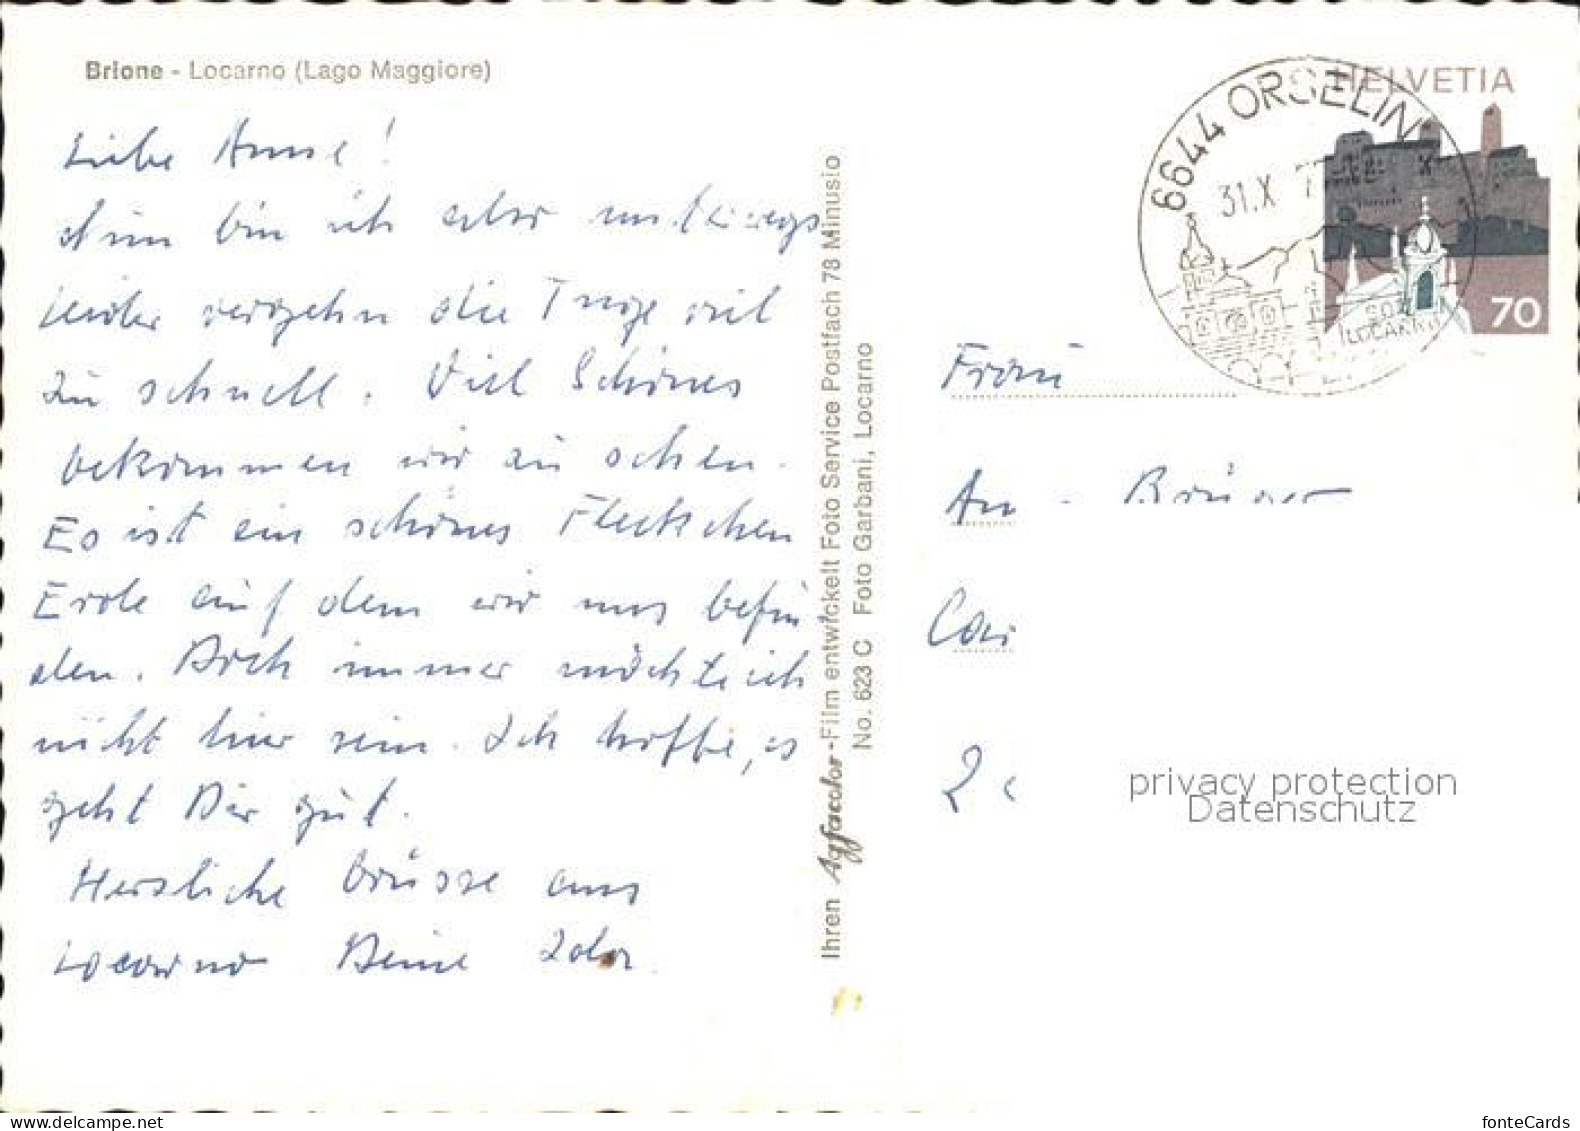 Brione - Locarno (Lago Maggiore)
Liebe Anne!
Nun bin ich aber unterwegs
leider vergehn die Tage viel
zu schnell. Viel Schönes
bekommen wir zu sehen.
Es ist ein schönes Fleckchen
Erde auf dem wir uns befin
den. Doch immer möchte ich
nicht hier sein. Ich hoffe, es
geht Dir gut.
Herzliche Grüsse aus
Locarno Deine
Ihren Agfacolor-Film entwickelt Foto Service Postfach 78 Minusio
No. 623 C Foto Garbani, Locarno
6644 ORSELINA
31.X 7
LOCARNO
HELVETIA
70
Frau
privacy protection
Datenschutz
fonteCards